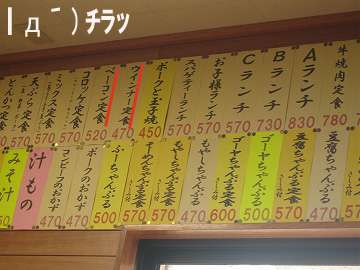 |дﾟ)ﾁﾗｯ
牛焼肉定食 780
Aランチ 830
Bランチ 730
Cランチ 570
お子様ランチ 570
スパゲティーランチ 570
ポークと玉子焼 450
ウインナー定食 470
ベーコン定食 520
コロッケ定食 570
ミックス定食 570
天ぷら定食 570
とんかつ定食
豆腐ちゃんぷる 470
豆腐ちゃんぷる定食 570
ゴーヤちゃんぷる 500
ゴーヤちゃんぷる定食 600
もやしちゃんぷる 470
もやしちゃんぷる定食 570
そーめんちゃんぷる定食 570
ふーちゃんぷる 500
ポークのおかず
コンビーフのおかず
汁もの
みそ汁